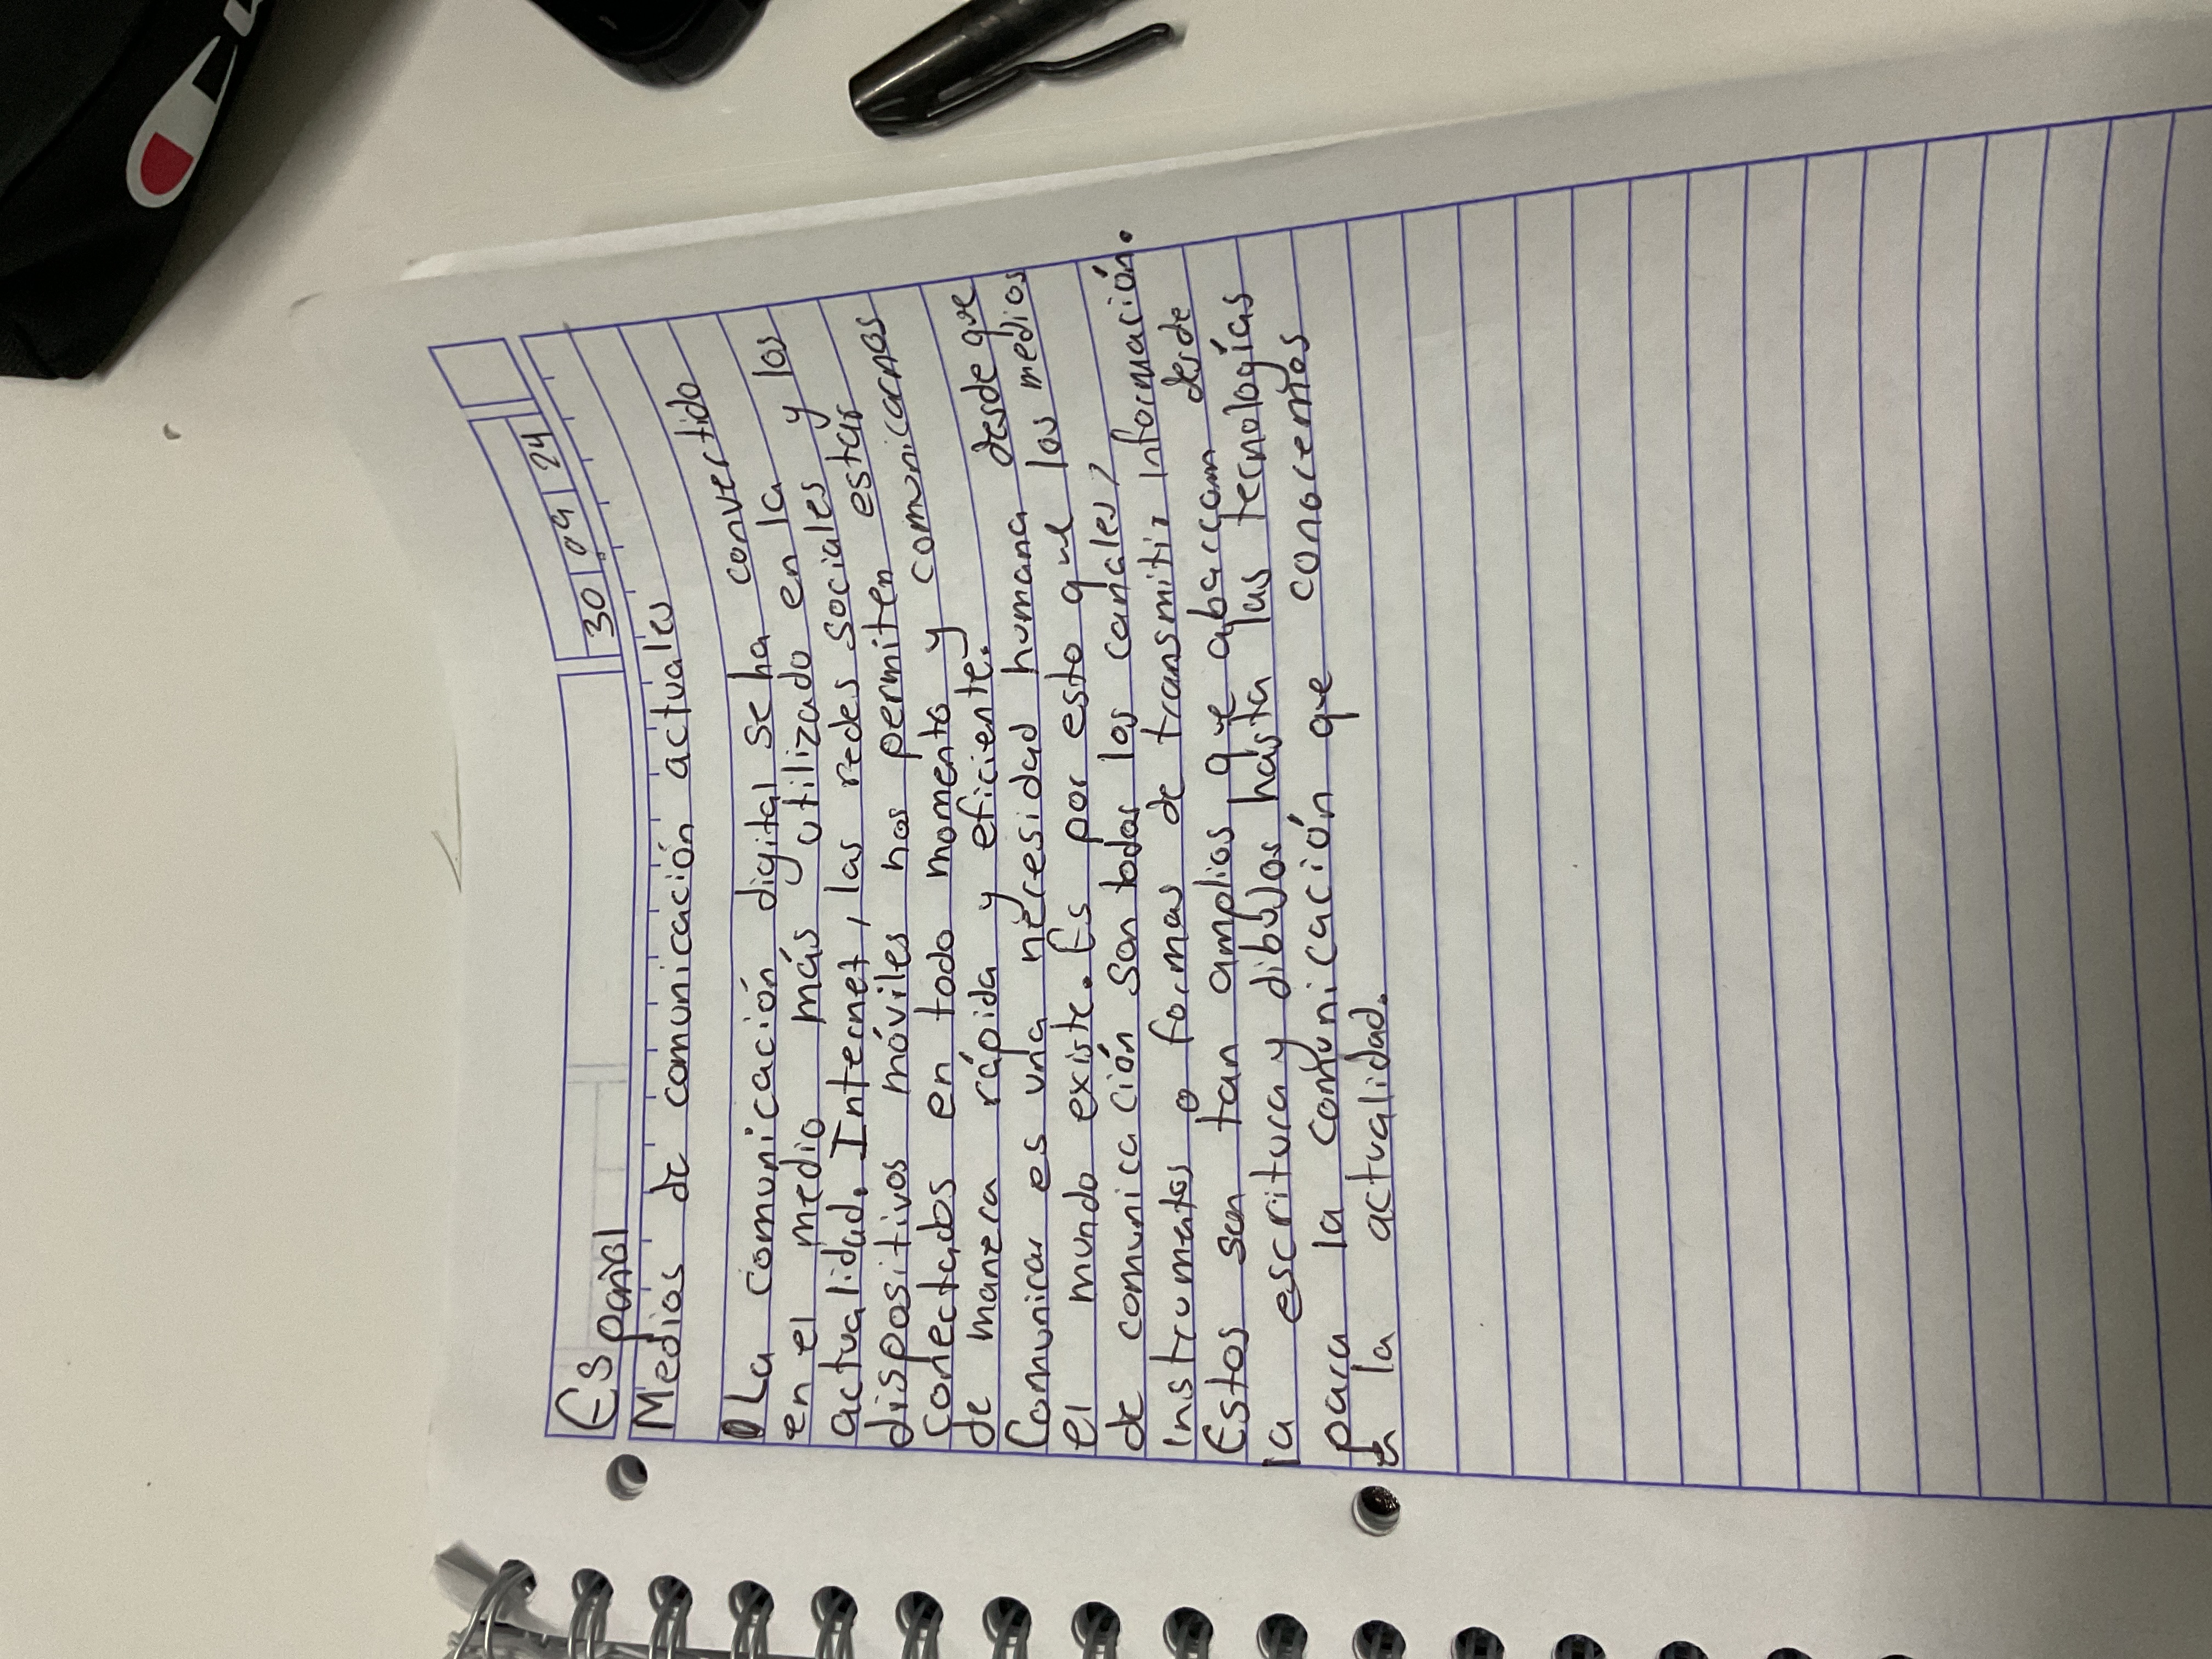 Español
30 09 24
Medios de comunicación actuales
La comunicación digital se ha convertido
en el medio más utilizado en la y los
actualidad. Internet, las redes sociales y
dispositivos móviles nos permiten estar
conectados en todo momento y comunicarnos
de manera rápida y eficiente.
Comunicar es una necesidad humana desde que
el mundo existe. Es por esto que los medios
de comunicación son todos los canales,
instrumentos o formas de transmitir información.
Estos son tan amplios que abarcan desde
la escritura y dibujos hasta las tecnologías
para la comunicación que conocemos
en la actualidad.